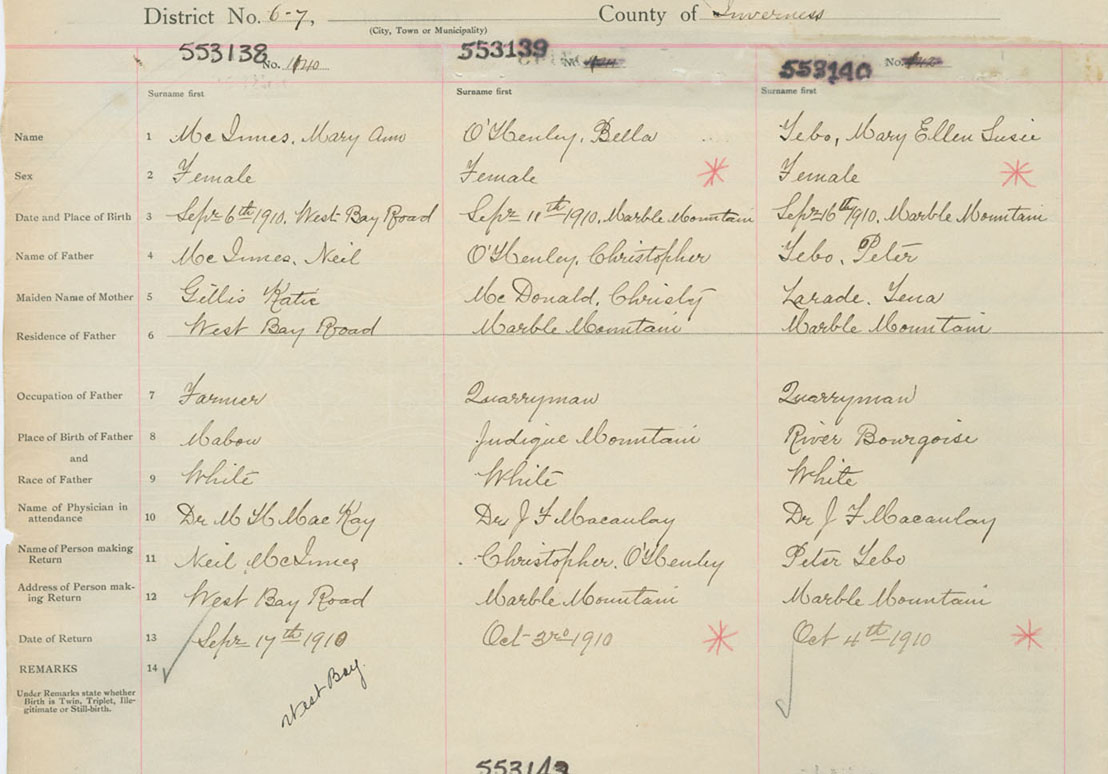 District No. 6-7, County of Inverness
(City, Town or Municipality)
553138 No. 553139 No. 553140 No.
Surname first Surname first Surname first
Name 1 Mc Innes, Mary Ann O'Henley, Bella Lebo, Mary Ellen Susie
Sex 2 Female Female Female
Date and Place of Birth 3 Sepr 6th 1910, West Bay Road Sepr 11th 1910, Marble Mountain Sepr 16th 1910, Marble Mountain
Name of Father 4 Mc Innes, Neil O'Henley, Christopher Lebo, Peter
Maiden Name of Mother 5 Gillis Katie Mc Donald, Christy Larade, Lena
Residence of Father 6 West Bay Road Marble Mountain Marble Mountain
Occupation of Father 7 Farmer Quarryman Quarryman
Place of Birth of Father 8 Mabou Judique Mountain River Bourgoise
and
Race of Father 9 White White White
Name of Physician in
attendance 10 Dr M H Mac Kay Dr J F Macaulay Dr J F Macaulay
Name of Person making
Return 11 Neil McInnes Christopher O'Henley Peter Lebo
Address of Person mak-
ing Return 12 West Bay Road Marble Mountain Marble Mountain
Date of Return 13 Sepr 17th 1910 Oct 3rd 1910 Oct 4th 1910
REMARKS 14
West Bay
Under Remarks state whether
Birth is Twin, Triplet, Ille-
gitimate or Still-birth.
553143